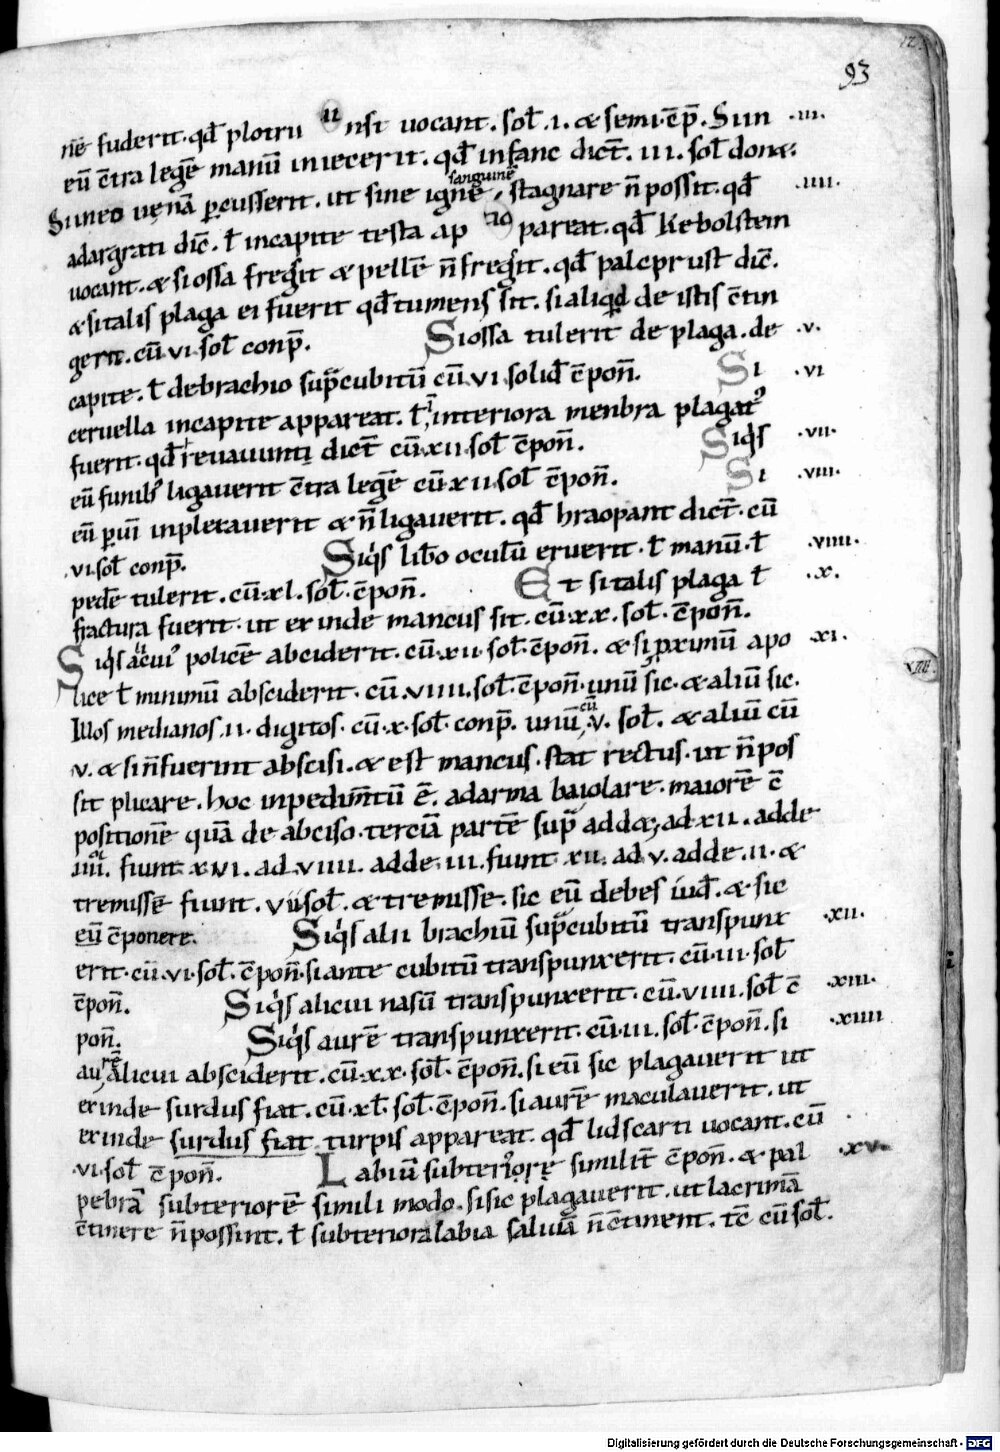 12.
93
nē fuderit. qđ plotru nsi uocant. sol. i. & semi. c̄p. Siin .iii.
eū c̄tra legē manū iniecerit. qđ infanc dict̄. iii. sol donæ.
Si in eo uęnā ꝑcusserit. ut sine igne sanguinē stagnare n̄ possit. qđ .iiii.
adargrati dic̄. ł incapite testa ap pareat. qđ kebolstein
uocant. & si ossa fregerit & pellē n̄ fregit. qđ palcprust dic̄.
& si talis plaga ei fuerit qđ tumens sit. si aliqđ de istis c̄tin
gerit. cū. vi. sol conp̄. Si ossa tulerit de plaga. de .v.
capite. ł de brachio sup̄ cubitū cū. vi. solid c̄pon̄. Si .vi
ceruella incapite appareat. ł interiora menbra plagat᾽
fuerit. qđ reuauunti dict̄ cū. xii. sol c̄pon̄. Siq̇s .vii.
eū funib᾽ ligauerit c̄tra legē cū. xii. sol c̄pon̄. Si .viii.
eū ꝑ uim inpletauerit & n̄ ligauerit. qđ hraopant dict̄. cū
.vi. sol conp̄. Siq̇s libo oculū eruerit. ł manū. ł .viiii.
pedē tulerit. cū. xl. sol. c̄pon̄. Et si talis plaga ł .x.
fractura fuerit. ut exinde mancus sit. cū. xx. sol. c̄pon̄.
Siq̇s alicui᾽ policē abciderit. cū. xii. sol. c̄pon̄. & si ꝓximū apo .xi.
lice ł minimū absciderit. cū. viiii. sol. c̄pon̄. unū sic. & aliū sic.
Illos medianos. ii. digitos. cū. x. sol. conp̄. unū cū. v. sol. & aliū cū
v. & si n̄ fuerint abscisi. & est mancus. stat rectus. ut n̄ pos
sit plicare. hoc inpedimt̄ū ē. ad arma baiolare. maiorē c̄
positionē quā de abciso. terciā partē sup̄ addæ. ad xii. adde
iiii. fiunt xvi. ad viiii. adde iii. fiunt xii. ad v. adde. ii. &
tremissē fiunt. vii sol. & tremisse. sic eū debes iuđ. & sic
eū c̄ponere. Siq̇s alii brachiū sup̄ cubitū transpunx .xii.
erit. cū. vi. sol. c̄pon̄. si ante cubitū transpunxerit. cū. iii. sol
c̄pon̄. Siq̇s alicui nasū transpunxerit. cū. viiii. sol c̄ .xiii.
pon̄. Siq̇s aurē transpunxerit. cū. iii. sol. c̄pon̄. si .xiiii
aurē alicui absciderit. cū. xx. sol. c̄pon̄. si eū sic plagauerit ut
exinde surdus fiat. cū. xl. sol. c̄pon̄. si aurē maculauerit. ut
exinde surdus fiat turpis appareat. qđ lidscarti uocant. cū
.vi. sol c̄pon̄. Labiū subteriorę similit̄ c̄pon̄. & pal .xv.
pebrā subteriorē simili modo. si sic plagauerit. ut lacrimā
c̄tinere n̄ possint. ł subteriora labia saliuā n̄ c̄tinent. tc̄ cū sol.
Digitalisierung gefördert durch die Deutsche Forschungsgemeinschaft - DFG